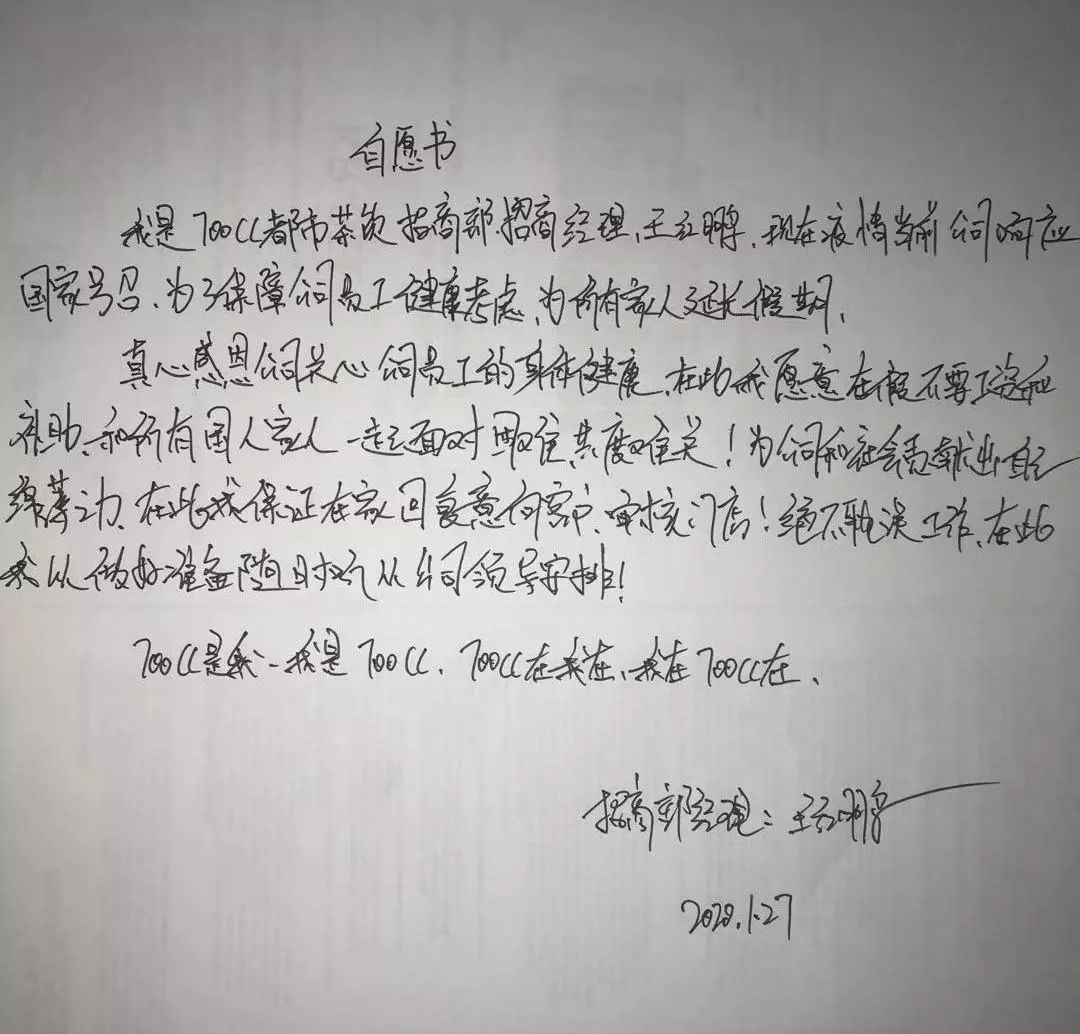 自愿书
我是700CC都市茶饮招商部招商经理、王红鹏、现在疫情当前公司响应
国家号召、为了保障公司员工健康考虑、为所有家人延长假期、
真心感恩公司关心公司员工的身体健康、在此我愿意在假不要工资和
补助、和所有国人家人一起面对困难共度难关！为公司和社会贡献出自己
绵薄之力、在此我保证在家回复意向客户、审核门店！绝不耽误工作、在此
我以做好准备随时听从公司领导安排！
700CC是我-我是700CC、700CC在我在、我在700CC在、
招商部经理：王红鹏
2020.1.27